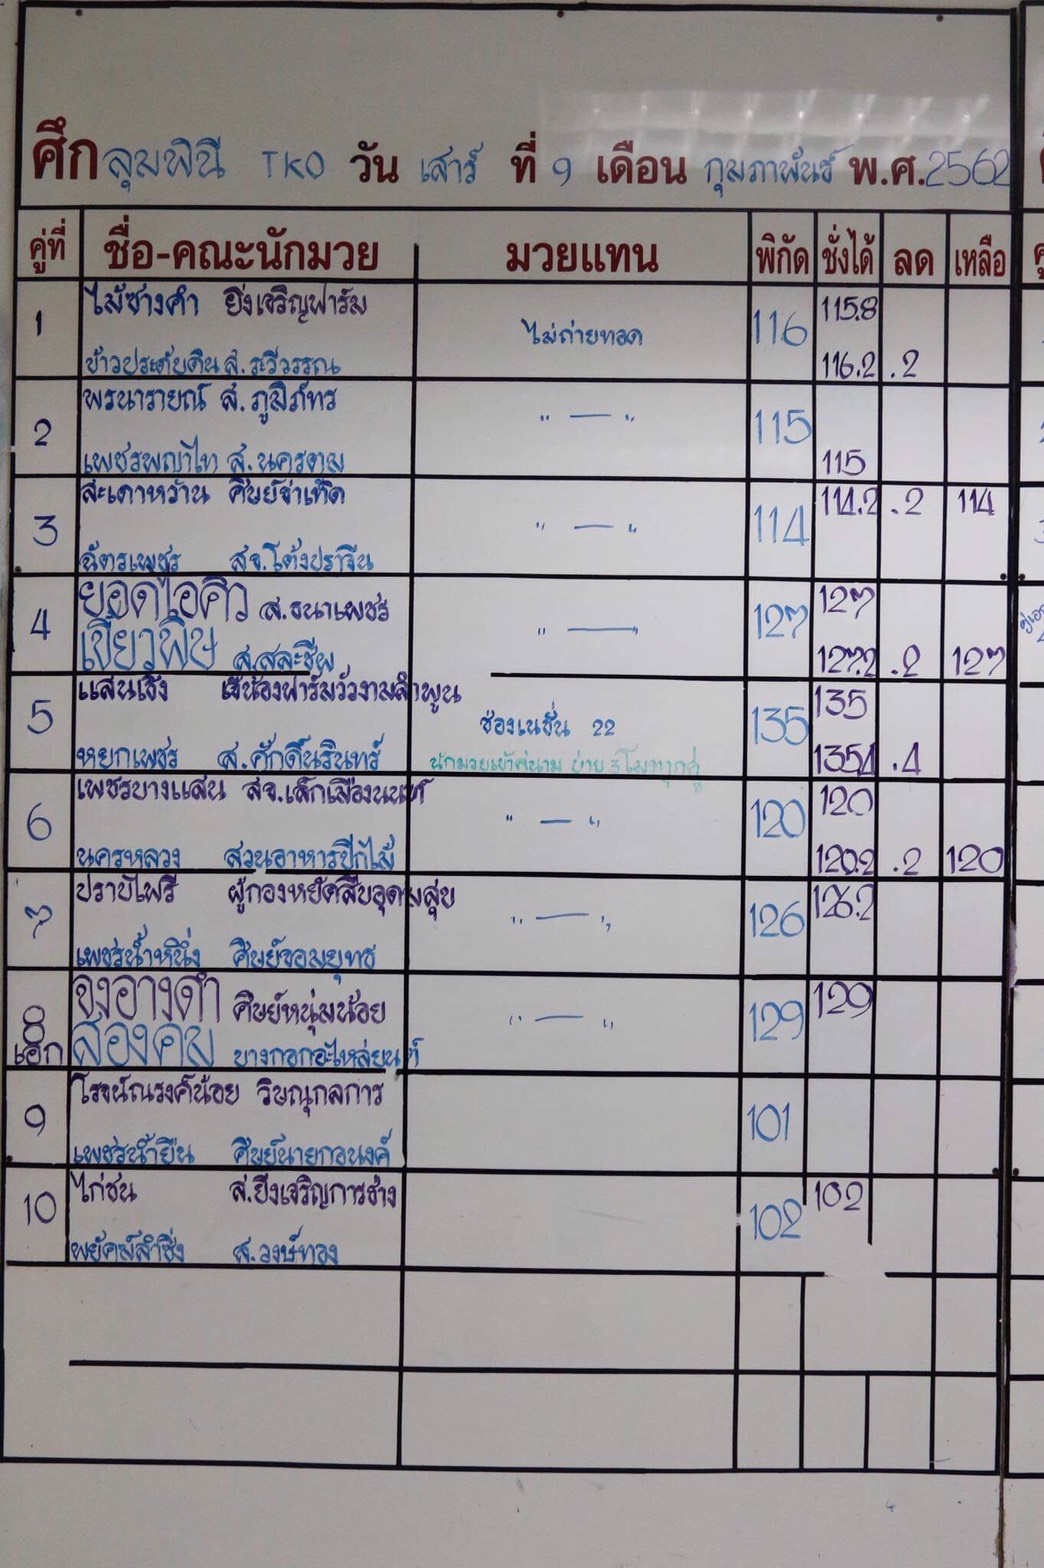 ศึก ลุมพินี TKO วัน เสาร์ ที่ 9 เดือน กุมภาพันธ์ พ.ศ. 2562
คู่ที่ ชื่อ-คณะนักมวย มวยแทน พิกัด ชั่งได้ ลด เหลือ
1 ไม้ซางคำ ยิ่งเจริญฟาร์ม ไม่ถ่ายทอด 116 115.8
ข้าวประดับดิน ส.ระวีวรรณ 116.2 .2
2 พรนารายณ์ ส.ภูมิภัทร " — " 115
เพชรพญาไท ส.นครตม 115
3 สะเดาหวาน ศิษย์จ่าเทิด " — " 114 114.2 .2 114
ฉัตรเพชร สจ.โต้งปราจีน
4 ยอดไอคิว ส.ธนาเพชร " — 127 127
เขียวพิษ ส.สละชีพ 127.2 .2 127
5 แสนเชิง เจ๊น้องฟาร์มวัวงามลำพูน ช่องเนชั่น 22 135 135
หยกเพชร ส.ศักดิ์นรินทร์ นักมวยเข้าสนาม บ่าย 3 โมงทุกคู่ 135.4 .4
6 เพชรบางแสน สจ.เล็กเมืองนนท์ " — " 120 120
นครหลวง สวนอาหารปีกไม้ 120.2 .2 120
7 ปราบไพรี ผู้กองหยัดสืบอุดมสุข " — " 126 126.2
เพชรน้ำหนึ่ง ศิษย์จอมยุทธ
8 จงอางดำ ศิษย์หนุ่มน้อย " — " 129 129
เอก สองคม บางกอกอะไหล่ยนต์
9 โรจน์ณรงค์น้อย วิษณุกลการ 101
เพชรน้ำยืน ศิษย์นายกอนงค์
10 ไก่ชน ส.ยิ่งเจริญการช่าง 102 102
พยัคฆ์ลำซิ่ง ส.วงษ์ทอง